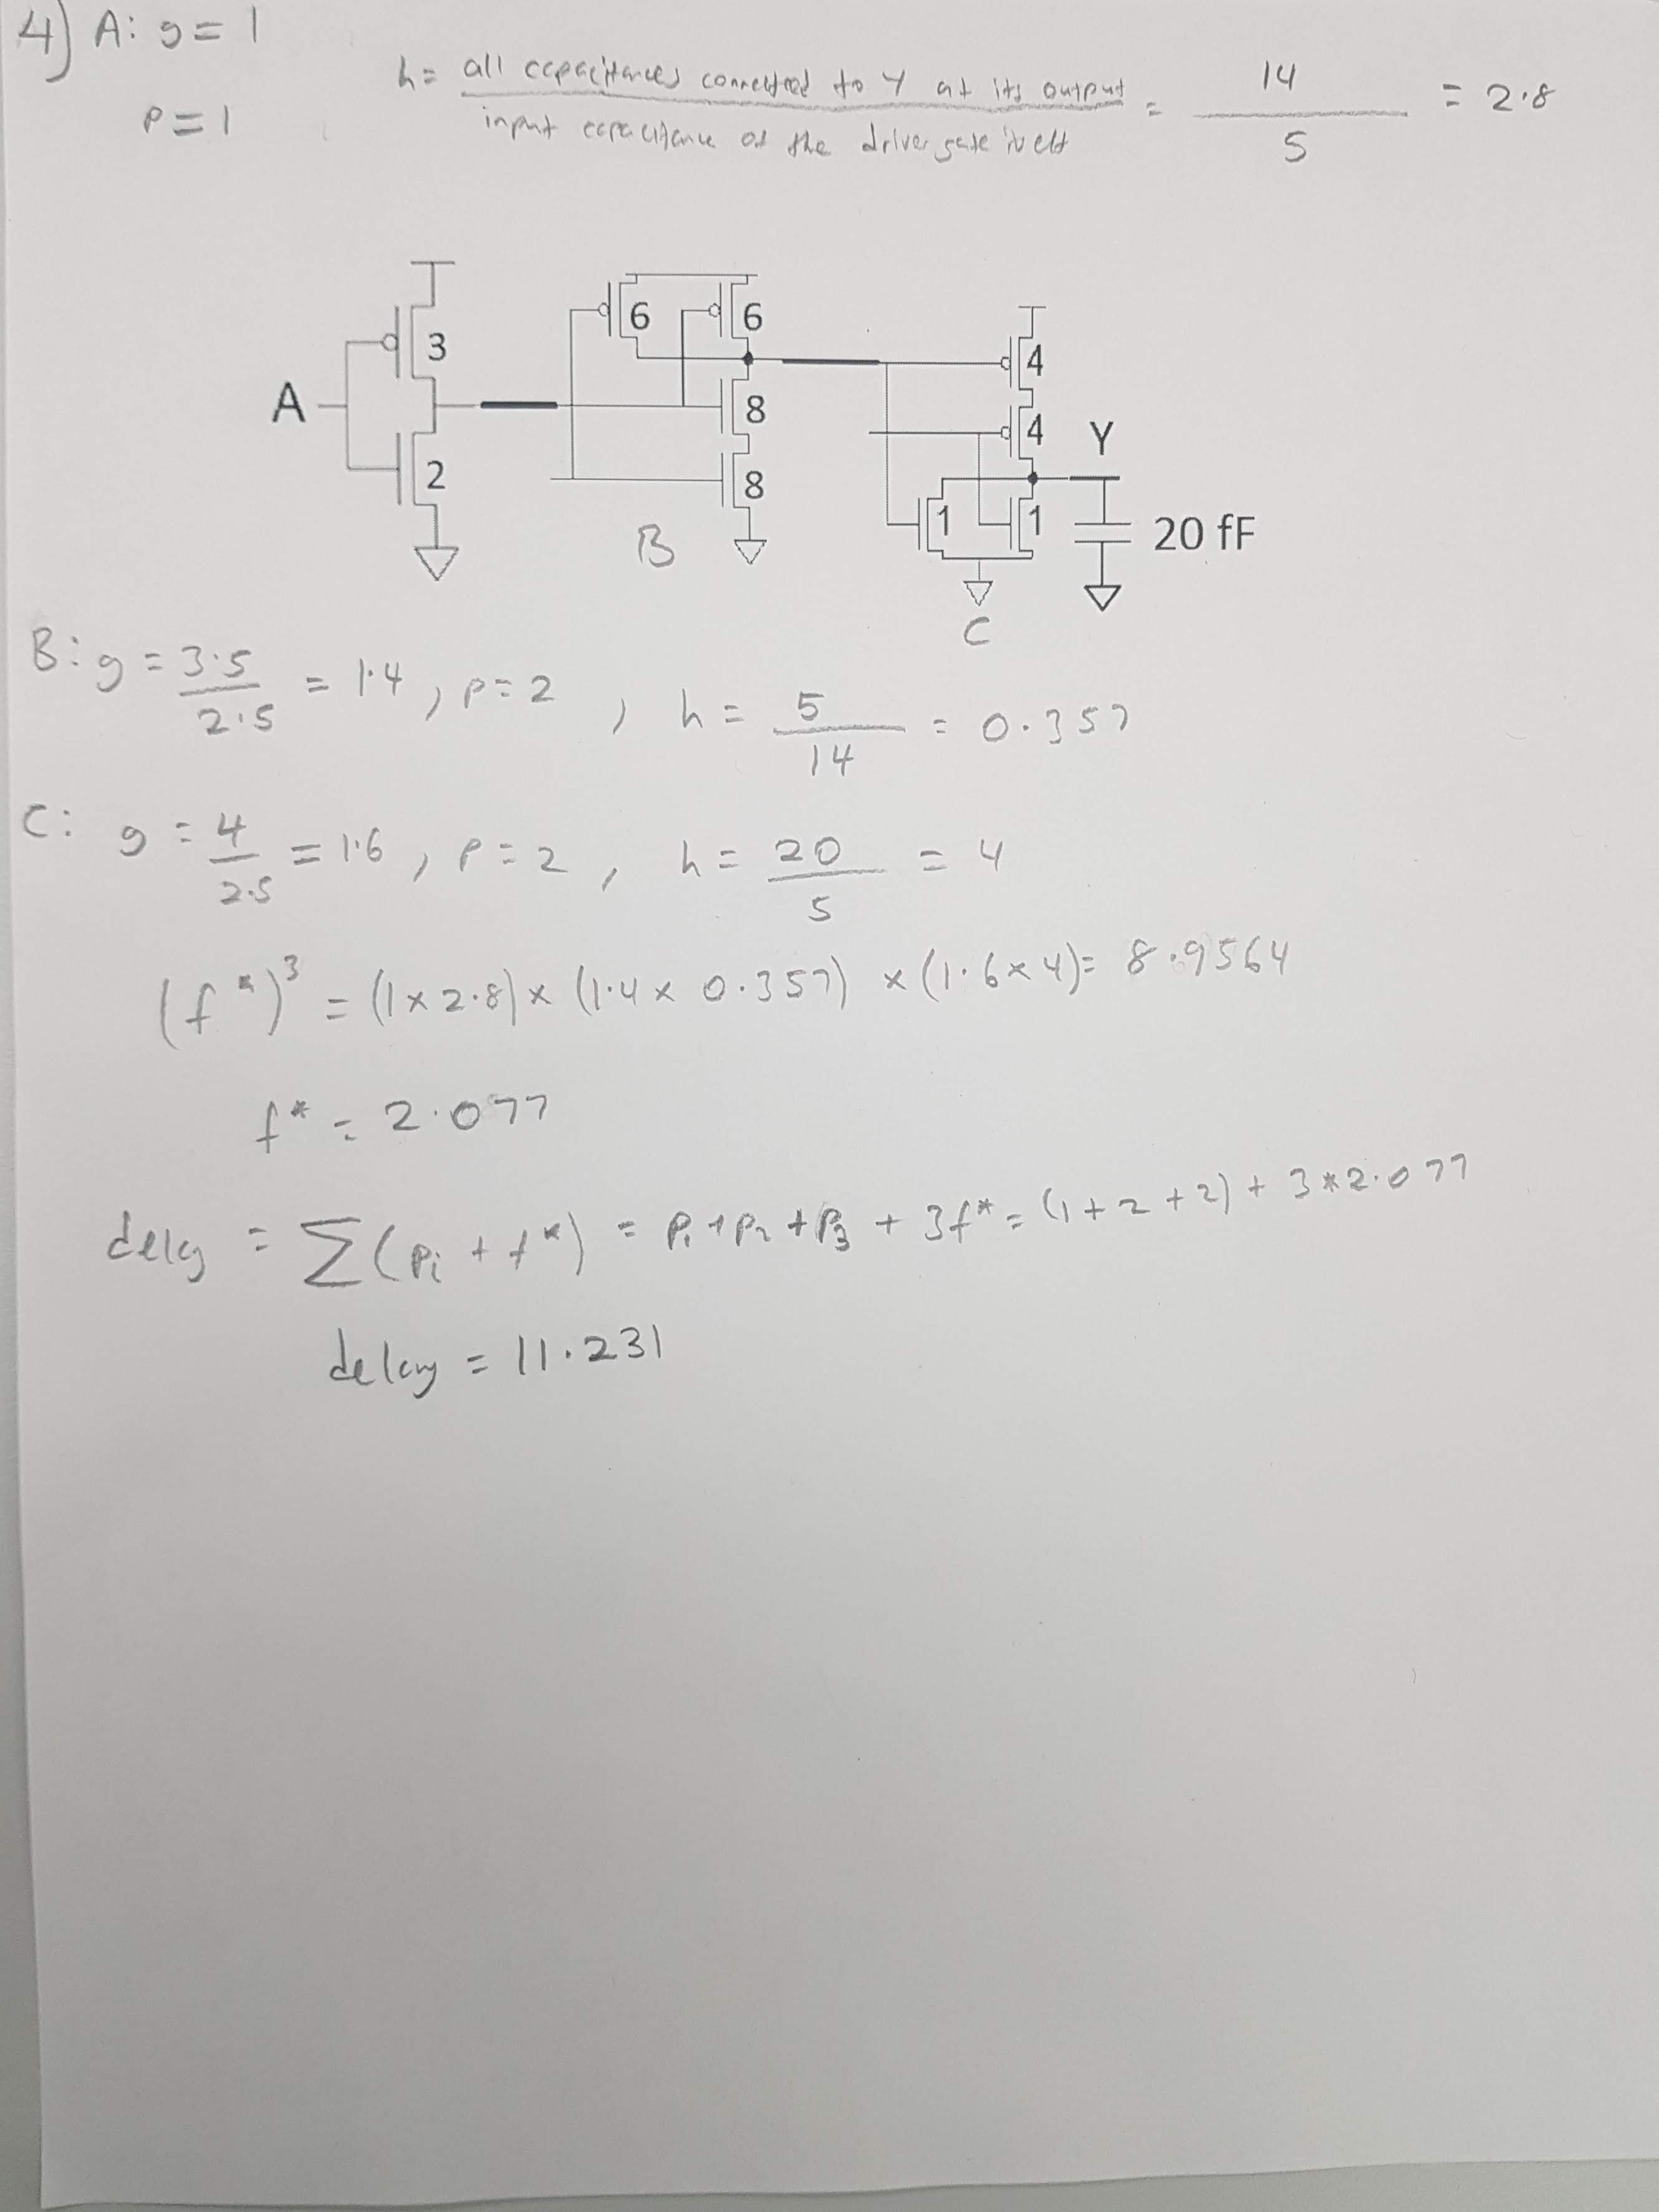 4) A: g = 1
P = 1
h = all capacitances connected to Y at its output / input capacitance of the driver gate itself = 14 / 5 = 2.8
A
3
2
6 6
8
8
B
4
4
1 1
Y
20 fF
C
B: g = 3.5 / 2.5 = 1.4 , p = 2 , h = 5 / 14 = 0.357
C: g = 4 / 2.5 = 1.6 , P = 2 , h = 20 / 5 = 4
(f*)³ = (1 x 2.8) x (1.4 x 0.357) x (1.6 x 4) = 8.9564
f* = 2.077
delay = Σ(Pi + f*) = P1 + P2 + P3 + 3f* = (1 + 2 + 2) + 3 * 2.077
delay = 11.231